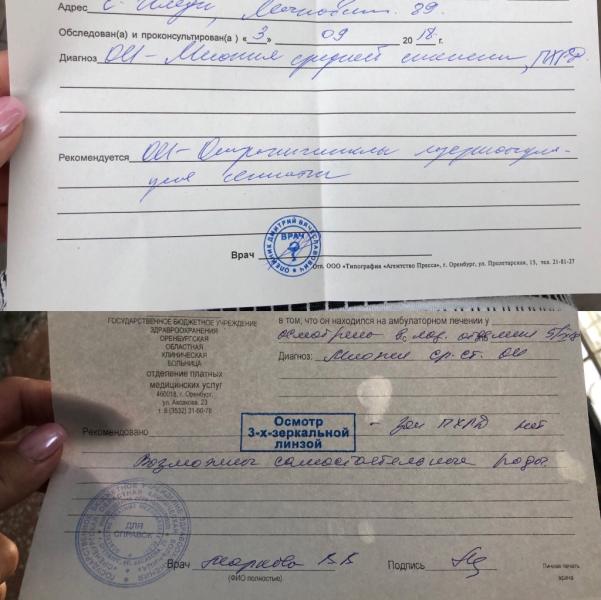 Адрес с. Илек, 39.
Обследован(а) и проконсультирован(а) «3» 09 2018 г.
Диагноз ОИ - Миопия средней степени, ПХРД.
Рекомендуется ОИ -
сетчатки
ВРАЧ
ОЛЕЙНИК ДМИТРИЙ ВЯЧЕСЛАВОВИЧ
Врач
Отп. ООО «Типография «Агентство Пресса», г. Оренбург, ул. Пролетарская, 15, тел. 21-81-27
ГОСУДАРСТВЕННОЕ БЮДЖЕТНОЕ УЧРЕЖДЕНИЕ
ЗДРАВООХРАНЕНИЯ
ОРЕНБУРГСКАЯ
ОБЛАСТНАЯ
КЛИНИЧЕСКАЯ
БОЛЬНИЦА
отделение платных
медицинских услуг
460018, г. Оренбург,
ул. Аксакова, 23
т. 8 (3532) 31-60-78
в том, что он находился на амбулаторном лечении у
осмотрена в
Диагноз: Миопия ср. ст. ОИ
Рекомендовано
Осмотр
3-х-зеркальной
линзой
- зон ПХРД нет
Возможны самостоятельные роды.
ДЛЯ
СПРАВОК
Врач Маркова В.В
(ФИО полностью)
Подпись
Личная печать
врача